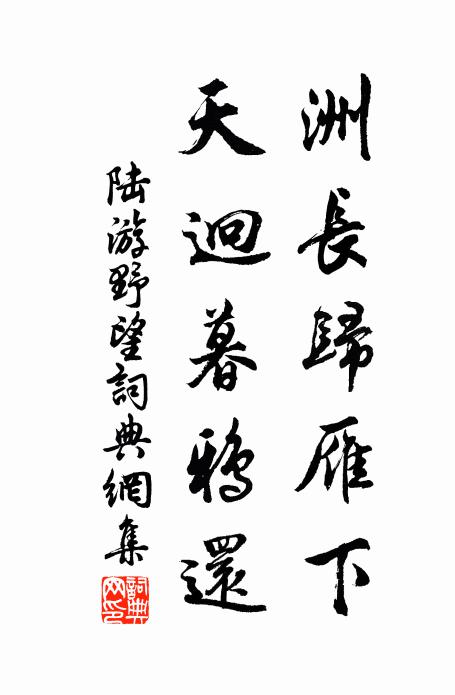 洲長歸雁下
天迥暮鴉還
陸游野望詞典網集
詞典网印